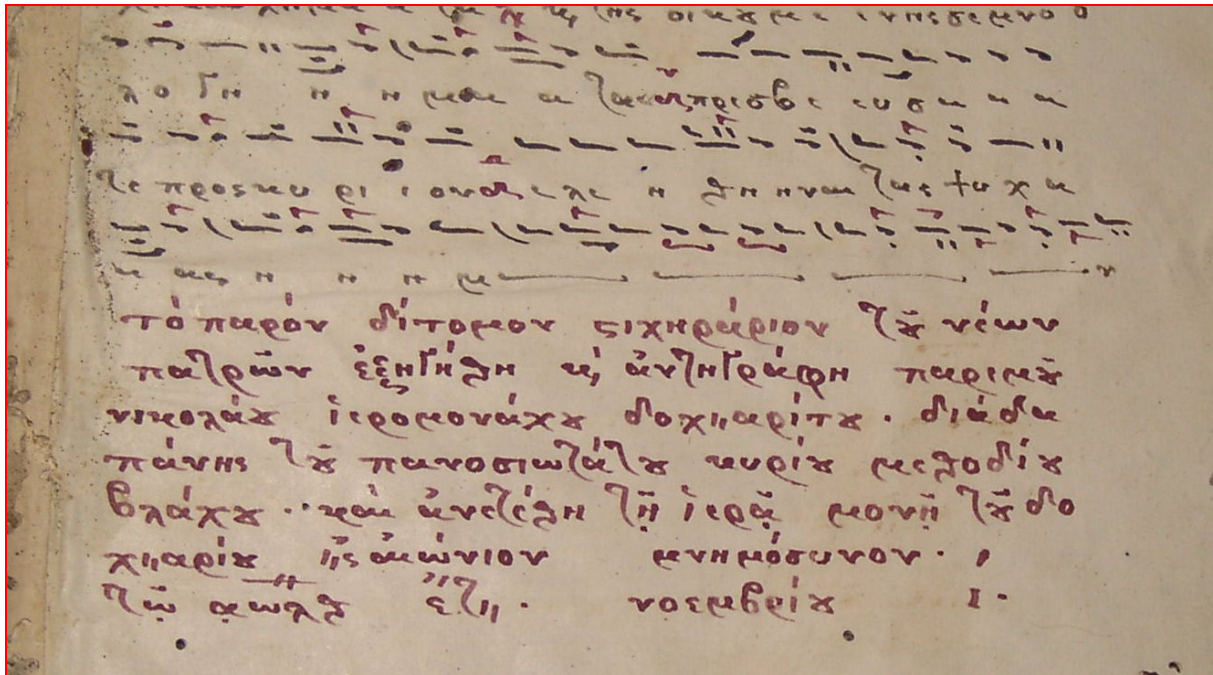 τε προς κυ ρι ι ον ελε η θη ηναι τας ψυ χα
α ας η η η μω ν
τὸ παρὸν δίτομον ςιχηράριον τοῦ νέων
πατρῶν ἐξηγήθη κ, ἀντηγράφη παρεμοῦ
νικολάου ἱερομονάχου δοχειαρίτου · διὰ δα
πάνης τοῦ πανοσιωτάτου κυρίου μεθοδίου
βλάχου · καὶ ἀνετέθη τῇ ἱερᾷ μονῇ τοῦ δο
χειαρίου εἰς αἰώνιον μνημόσυνον ·
τῷ αωλθ ἔτει · νοεμβρίου Ι ·